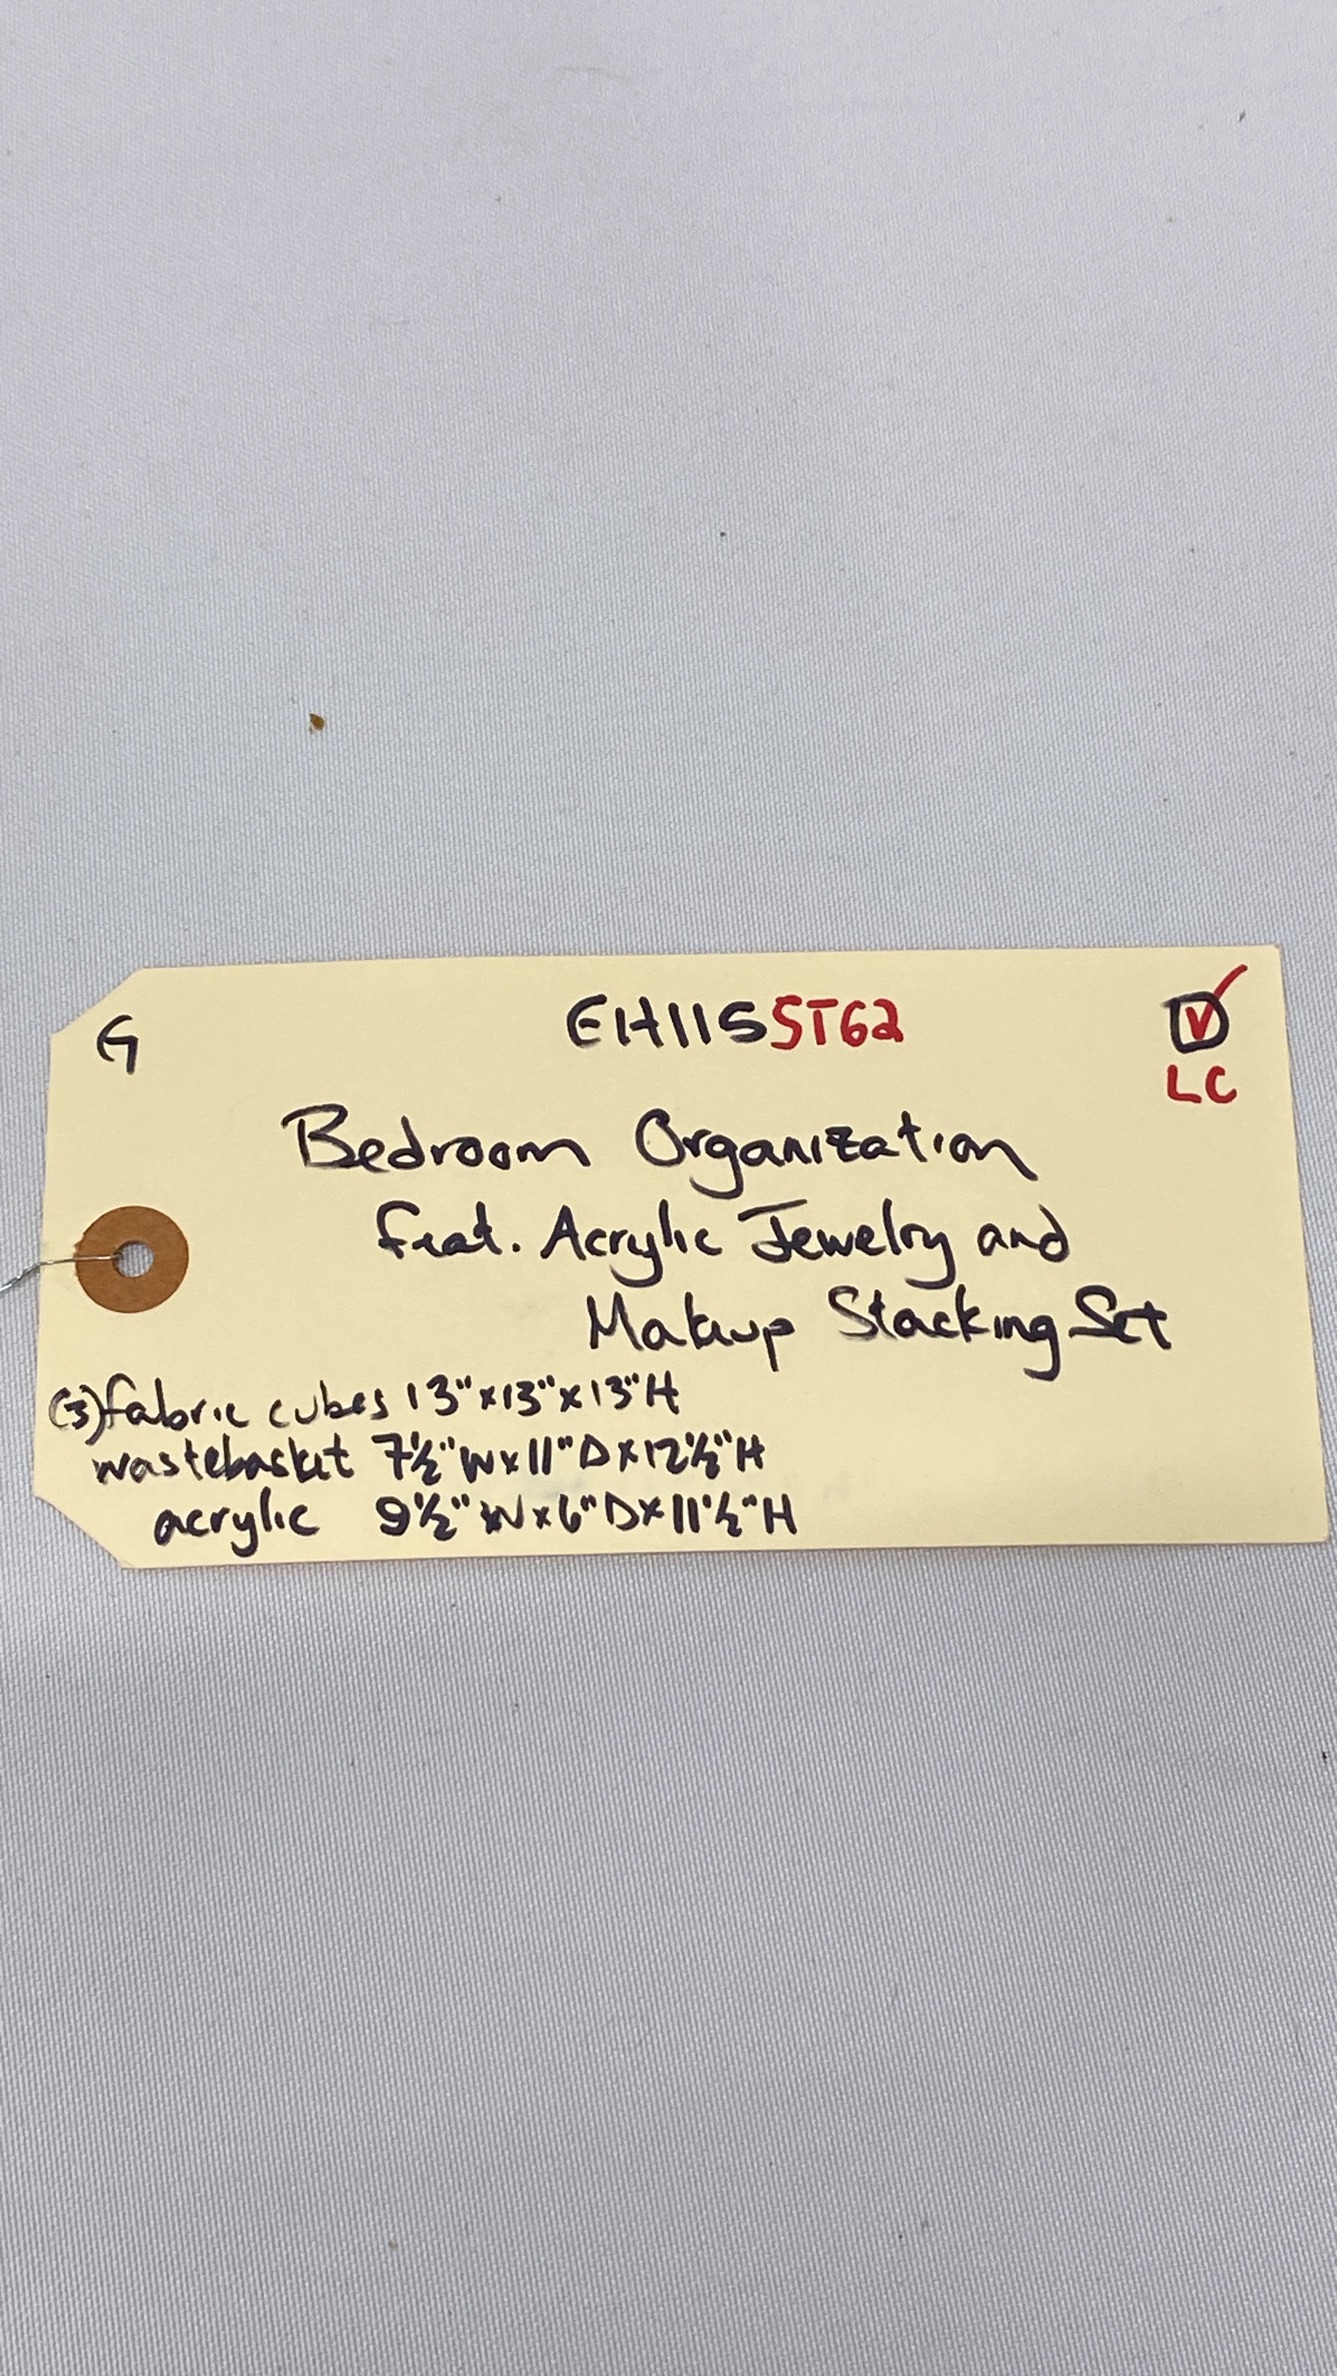 G EH115ST62 ☑
LC
Bedroom Organization
feat. Acrylic Jewelry and
Makeup Stacking Set
(3) fabric cubes 13"x13"x13"H
wastebasket 7½"Wx11"Dx12½"H
acrylic 9½"Wx6"Dx11½"H